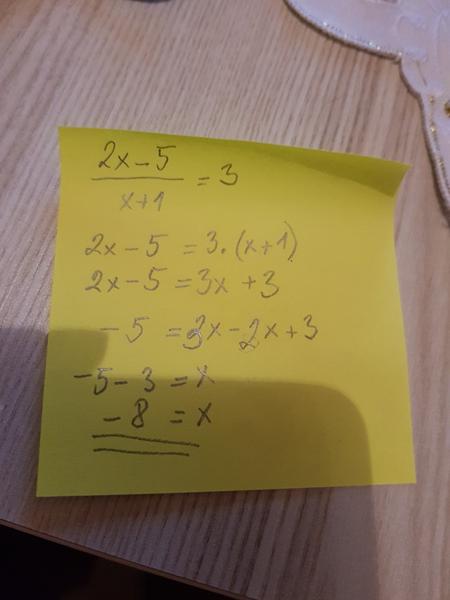 2x-5
x+1
= 3
2x-5 = 3.(x+1)
2x-5 = 3x +3
-5 = 3x-2x+3
-5-3 = x
-8 = x